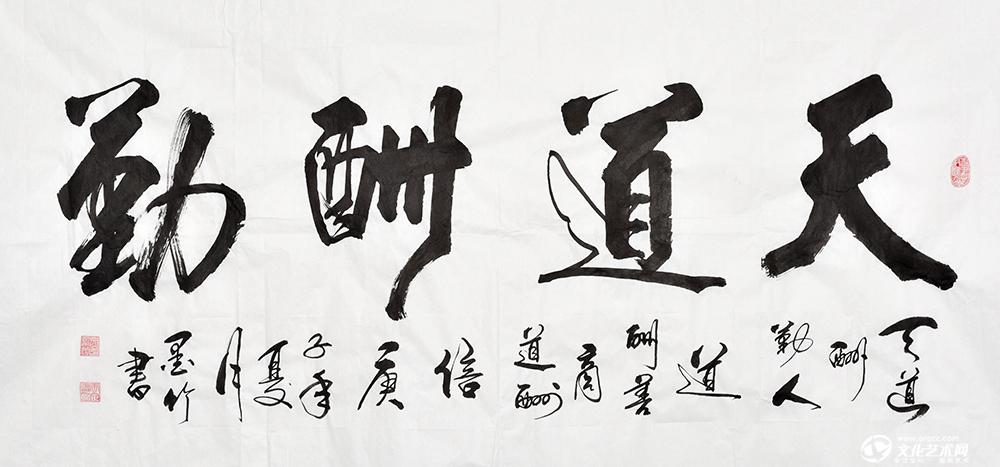 天道酬勤
天道
酬
勤人
道
酬善
商
道酬
信
庚
子年
夏
月
墨竹
書
文化艺术网